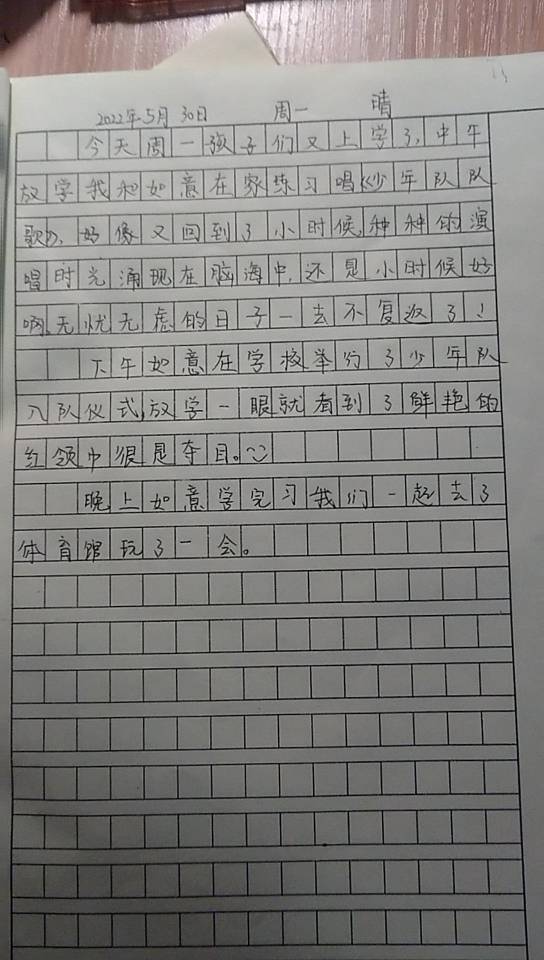 2022年5月30日 周一 晴
今天周一孩子们又上学了,中午
放学我和如意在家练习唱《少年队队
歌》,好像又回到了小时候,种种的演
唱时光涌现在脑海中,还是小时候好
啊,无忧无虑的日子一去不复返了!
下午如意在学校举行了少年队
入队仪式,放学一眼就看到了鲜艳的
红领巾很是夺目。
晚上如意学完习我们一起去了
体育馆玩了一会。